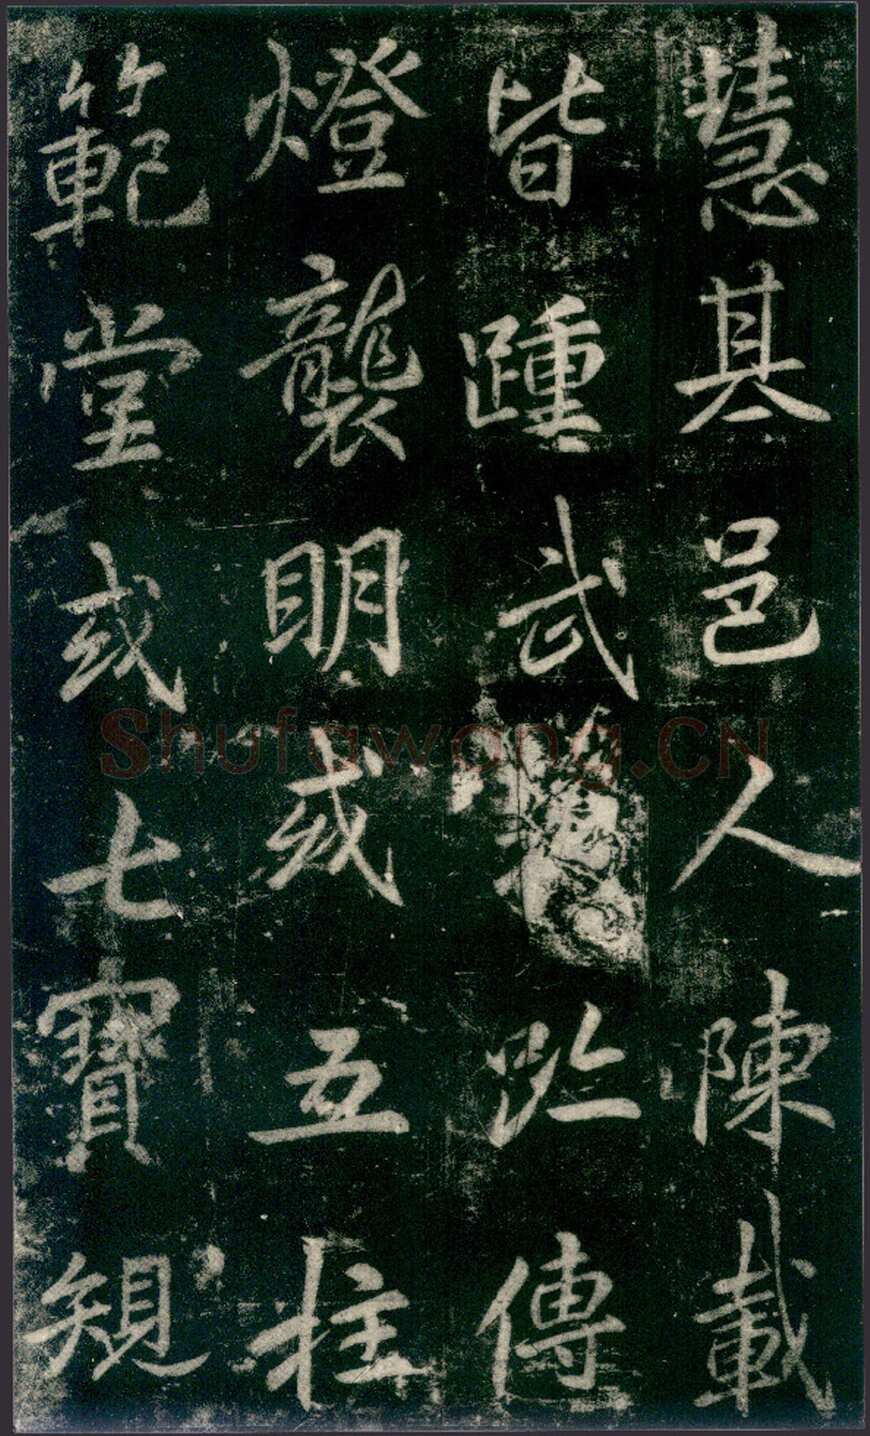 慧基邑人陳載
皆踵武趾傳
燈襲明或五柱
範堂或七寶規
Shufawang.CN